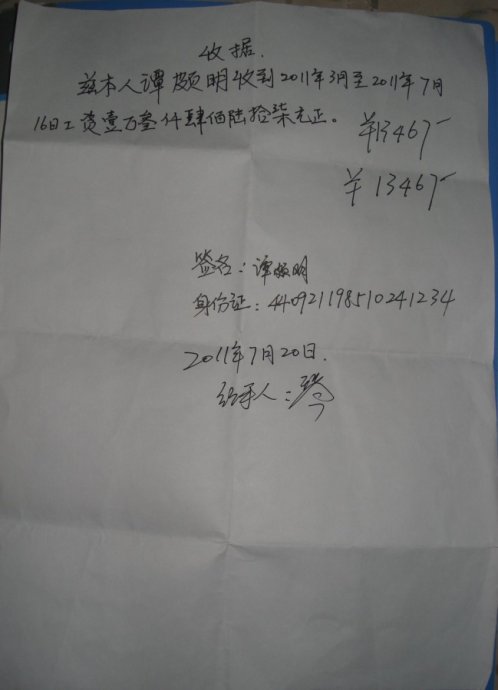 收据.
兹本人谭颇明收到2011年3月至2011年7月
16日工资壹万叁仟肆佰陆拾柒元正。 ¥13467-
¥13467-
签名:谭颇明
身份证:440921198510241234
2011年7月20日.
经手人: